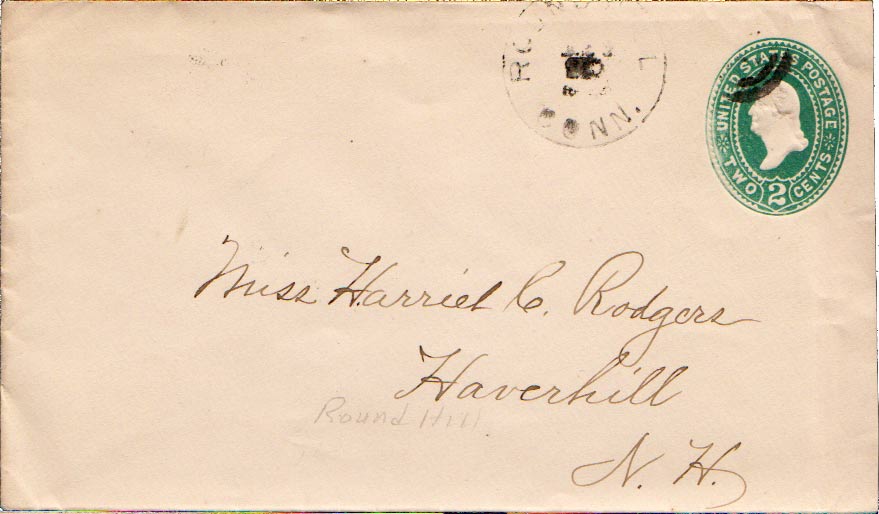 CONN.
UNITED STATES POSTAGE
TWO 2 CENTS
Miss Harriet C. Rodgers
Haverhill
Round Hill
N. H.